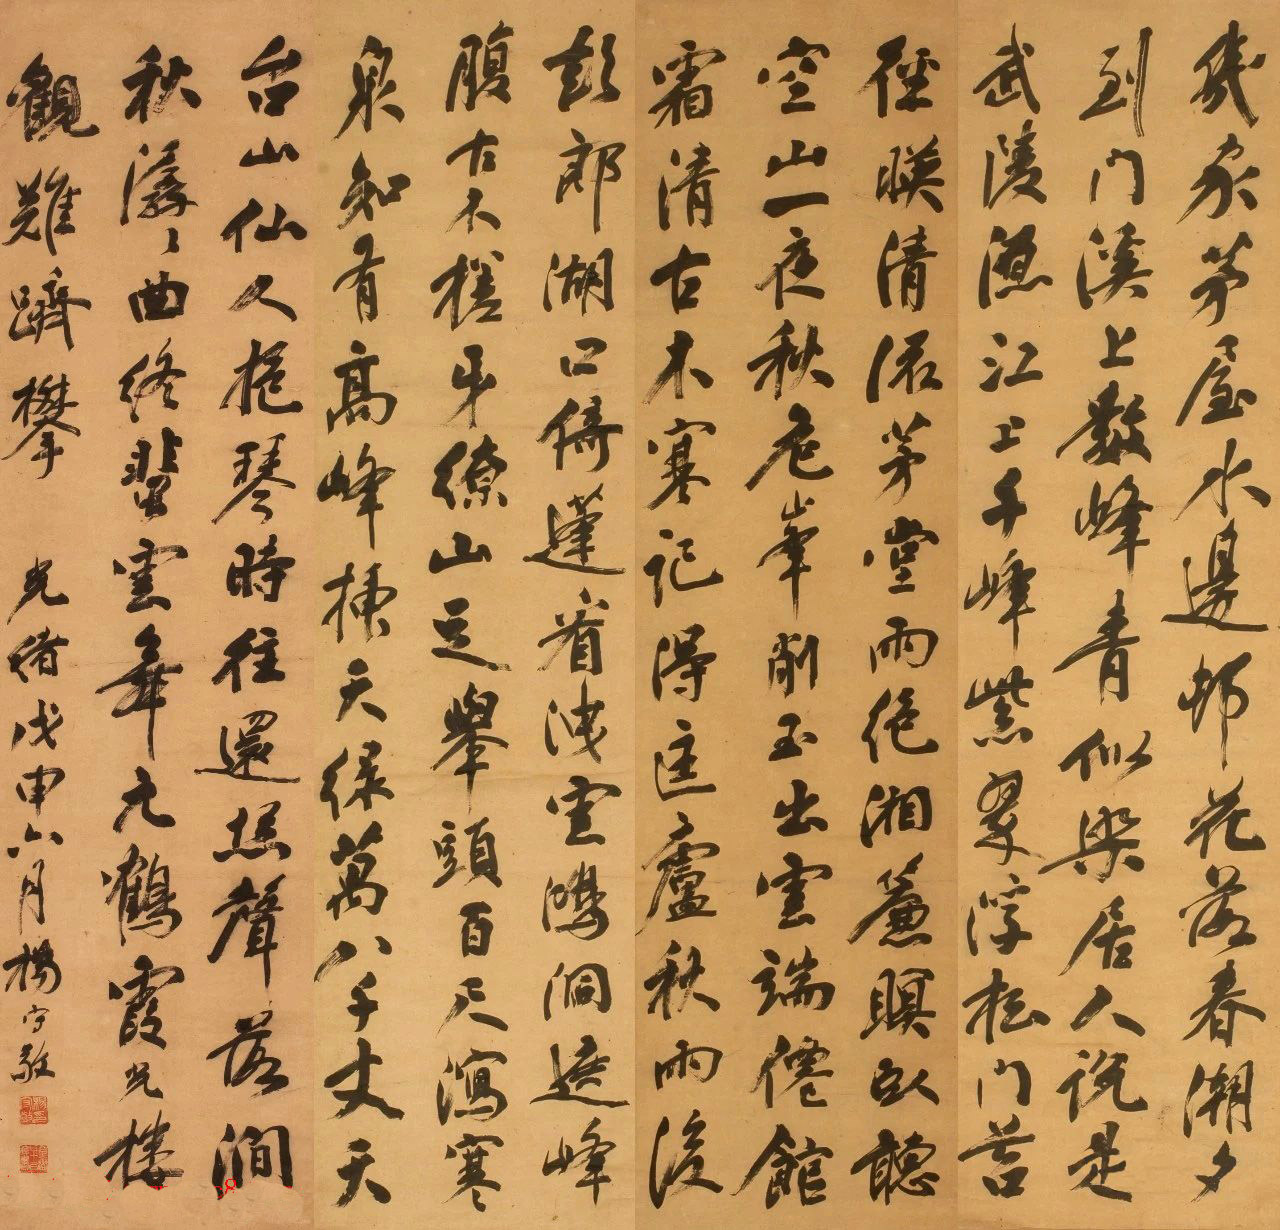 幾家茅屋水邊邨花落春潮夕
到門溪上數峰青似染居人說是
武陵源江上千峰紫翠浮松門苔
徑暎清流茅堂雨絕湘簾暝臥聽
空山一夜秋危峯削玉出雲端僊館
霜清古木寒記得匡廬秋雨後
彭郎湖口倚蓬看洩雲鴻洞遮峰
腹古木槎牙繚山足舉頭百尺瀉寒
泉知有高峰插天綠萬八千丈天
台山仙人抱琴時往還聲落澗
秋潺〻曲終蜚雲舞元鶴霞光樓
觀難躋攀 光緒戊申六月楊守敬